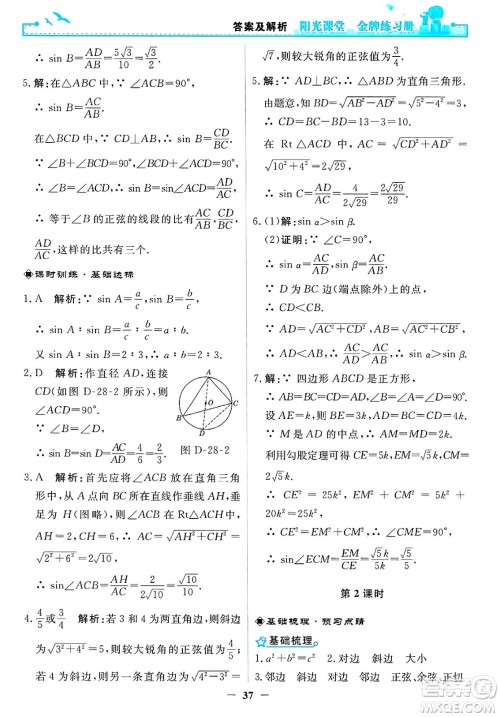 答案及解析 阳光课堂 金牌练习册
∴ sin B=AD/AB=5√3/10=√3/2.
在△ABC 中,∵ ∠BAC=90°,
∴ sin B=AC/BC.
在△CDB 中,∵ ∠CDB=90°,∴ sin B=CD/BC.
∵ ∠B+∠BCD=90°,∠BCD+∠ACD=90°,
∴ ∠B=∠ACD.
∴ 等于∠B 的正弦的线段的比有AC/BC,CD/BC,
AD/AC.
课时训练·基础达标
1. A 解析:∵ sin A=a/c,sin B=b/c,
∴ sin A∶sin B=a/c∶b/c=a∶b.
又 sin A∶sin B=2∶3,∴ a∶b=2∶3.
2. D 解析:作直径 AD,连接
CD(如图 D-28-2 所示),则
∠ACD=90°.
∵ ∠B=∠D,
∴ sin B=sin D=AC/AD=4/6=2/3.
图 D-28-2
3. A 解析:sin∠ACB 应放在直角三角形
中求解.从 A 处向 BC 所在直线作垂线,垂
足为 H(图略),则在 Rt△ACH 中,
AH=2,CH=6,∴ AC=√(AH²+CH²)=
√(2²+6²)=2√10.
∴ sin∠ACB=AH/AC=2/(2√10)=√10/10.
4. 4/5或3/4 解析:若 3 和 4 为两直角边,则斜边
为√(3²+4²)=5,较大锐角的正弦值为4/5;若 4
是斜边,则另一直角边的长为√(4²-3²)=
√7,则较大锐角的正弦值为3/4.
5. 解:∵ AD⊥BC,∴ △ABD 为直角三角形.
由题意知 BD=√(AB²-AD²)=√(5²-4²)=3,
∴ CD=BC-BD=13-3=10.
在 Rt△ACD 中,AC=√(AD²+CD²)=
√(10²+4²)=2√29.
∴ sin C=AD/AC=4/(2√29)=2√29/29.
6. (1)解:sin α>sin β.
(2)证明:∵ ∠C=90°,
∴ sin α=AC/AD,sin β=AC/AB.
∵ D 为 BC 边(端点除外)上的点,
∴ CD<BC.
∵ AD=√(AC²+CD²),AB=√(AC²+BC²),
∴ AD<AB.
∴ AC/AD>AC/AB,即 sin α>sin β.
7. 解:∵ 四边形 ABCD 是正方形,
∴ AB=BC=CD=DA,∠A=∠B=∠D=90°.
设 AE=k,则 BE=3k,BC=4k.
∵ M 是 AD 的中点,∴ AM=DM=2k.
利用勾股定理可求得 CE=5k,EM=√5k,
CM=2√5k.
∴ CE²=25k²,EM²+CM²=25k².
∴ CE²=EM²+CM².
∴ △CEM 是直角三角形,且∠CME=90°.
∴ sin∠ECM=EM/CE=√5k/5k=√5/5.
第 2 课时
基础梳理·预习点睛
基础梳理
1. a²+b²=c² 2. 对边 斜边 大 小
3. 邻边 斜边 对边 邻边 正弦、余弦、正切
37